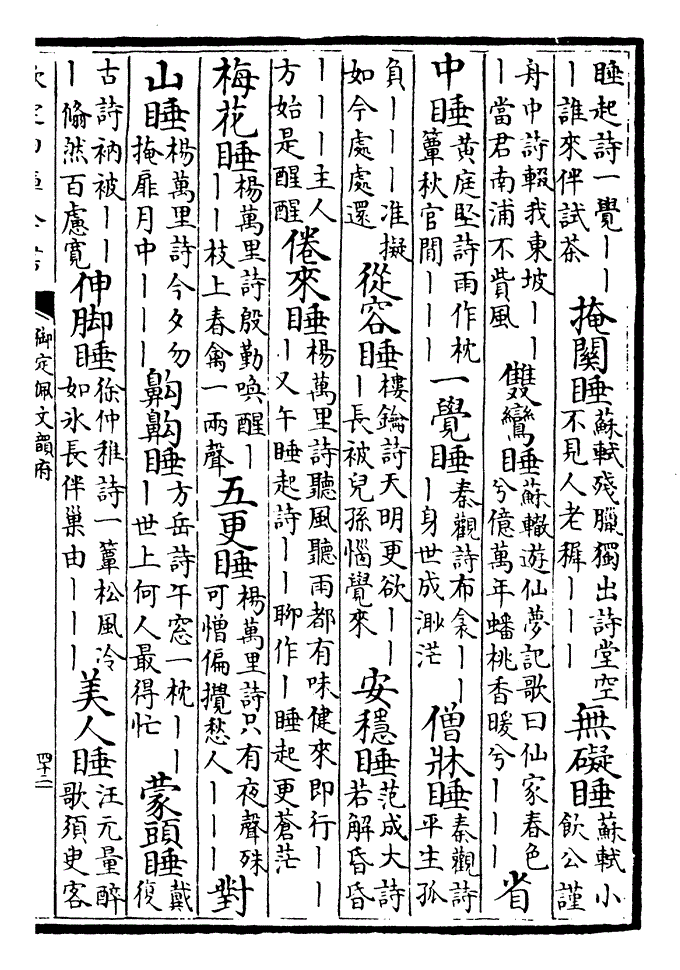 睡起詩一覺丨丨丨誰來伴試茶 掩關睡 蘇軾殘臘獨出詩堂空不見人老稺丨丨丨 無礙睡 蘇軾小飲公謹
舟中詩輟我東坡丨丨丨當君南浦不貲風 雙鸞睡 蘇轍遊仙夢記歌曰仙家春色兮億萬年蟠桃香暖兮丨丨丨 省
中睡 黃庭堅詩雨作枕簟秋官閒丨丨丨 一覺睡 秦觀詩布衾丨丨丨身世成渺茫 僧牀睡 秦觀詩平生孤
負丨丨丨准擬如今處處還 從容睡 樓鑰詩天明更欲丨丨丨長被兒孫惱覺來 安穩睡 范成大詩若解昏昏
丨丨丨主人方始是醒醒 倦來睡 楊萬里詩聽風聽雨都有味健來即行丨丨丨又午睡起詩丨丨聊作丨睡起更蒼茫
梅花睡 楊萬里詩殷勤喚醒丨丨丨枝上春禽一兩聲 五更睡 楊萬里詩只有夜聲殊可憎偏攪愁人丨丨丨 對
山睡 楊萬里詩今夕勿掩扉月中丨丨丨 齁齁睡 方岳詩午窓一枕丨丨丨世上何人最得忙 蒙頭睡 戴復
古詩衲被丨丨丨翛然百慮寬 伸脚睡 徐仲稚詩一簟松風冷如氷長伴巢由丨丨丨 美人睡 汪元量醉歌須臾客
御定佩文韻府
四十二